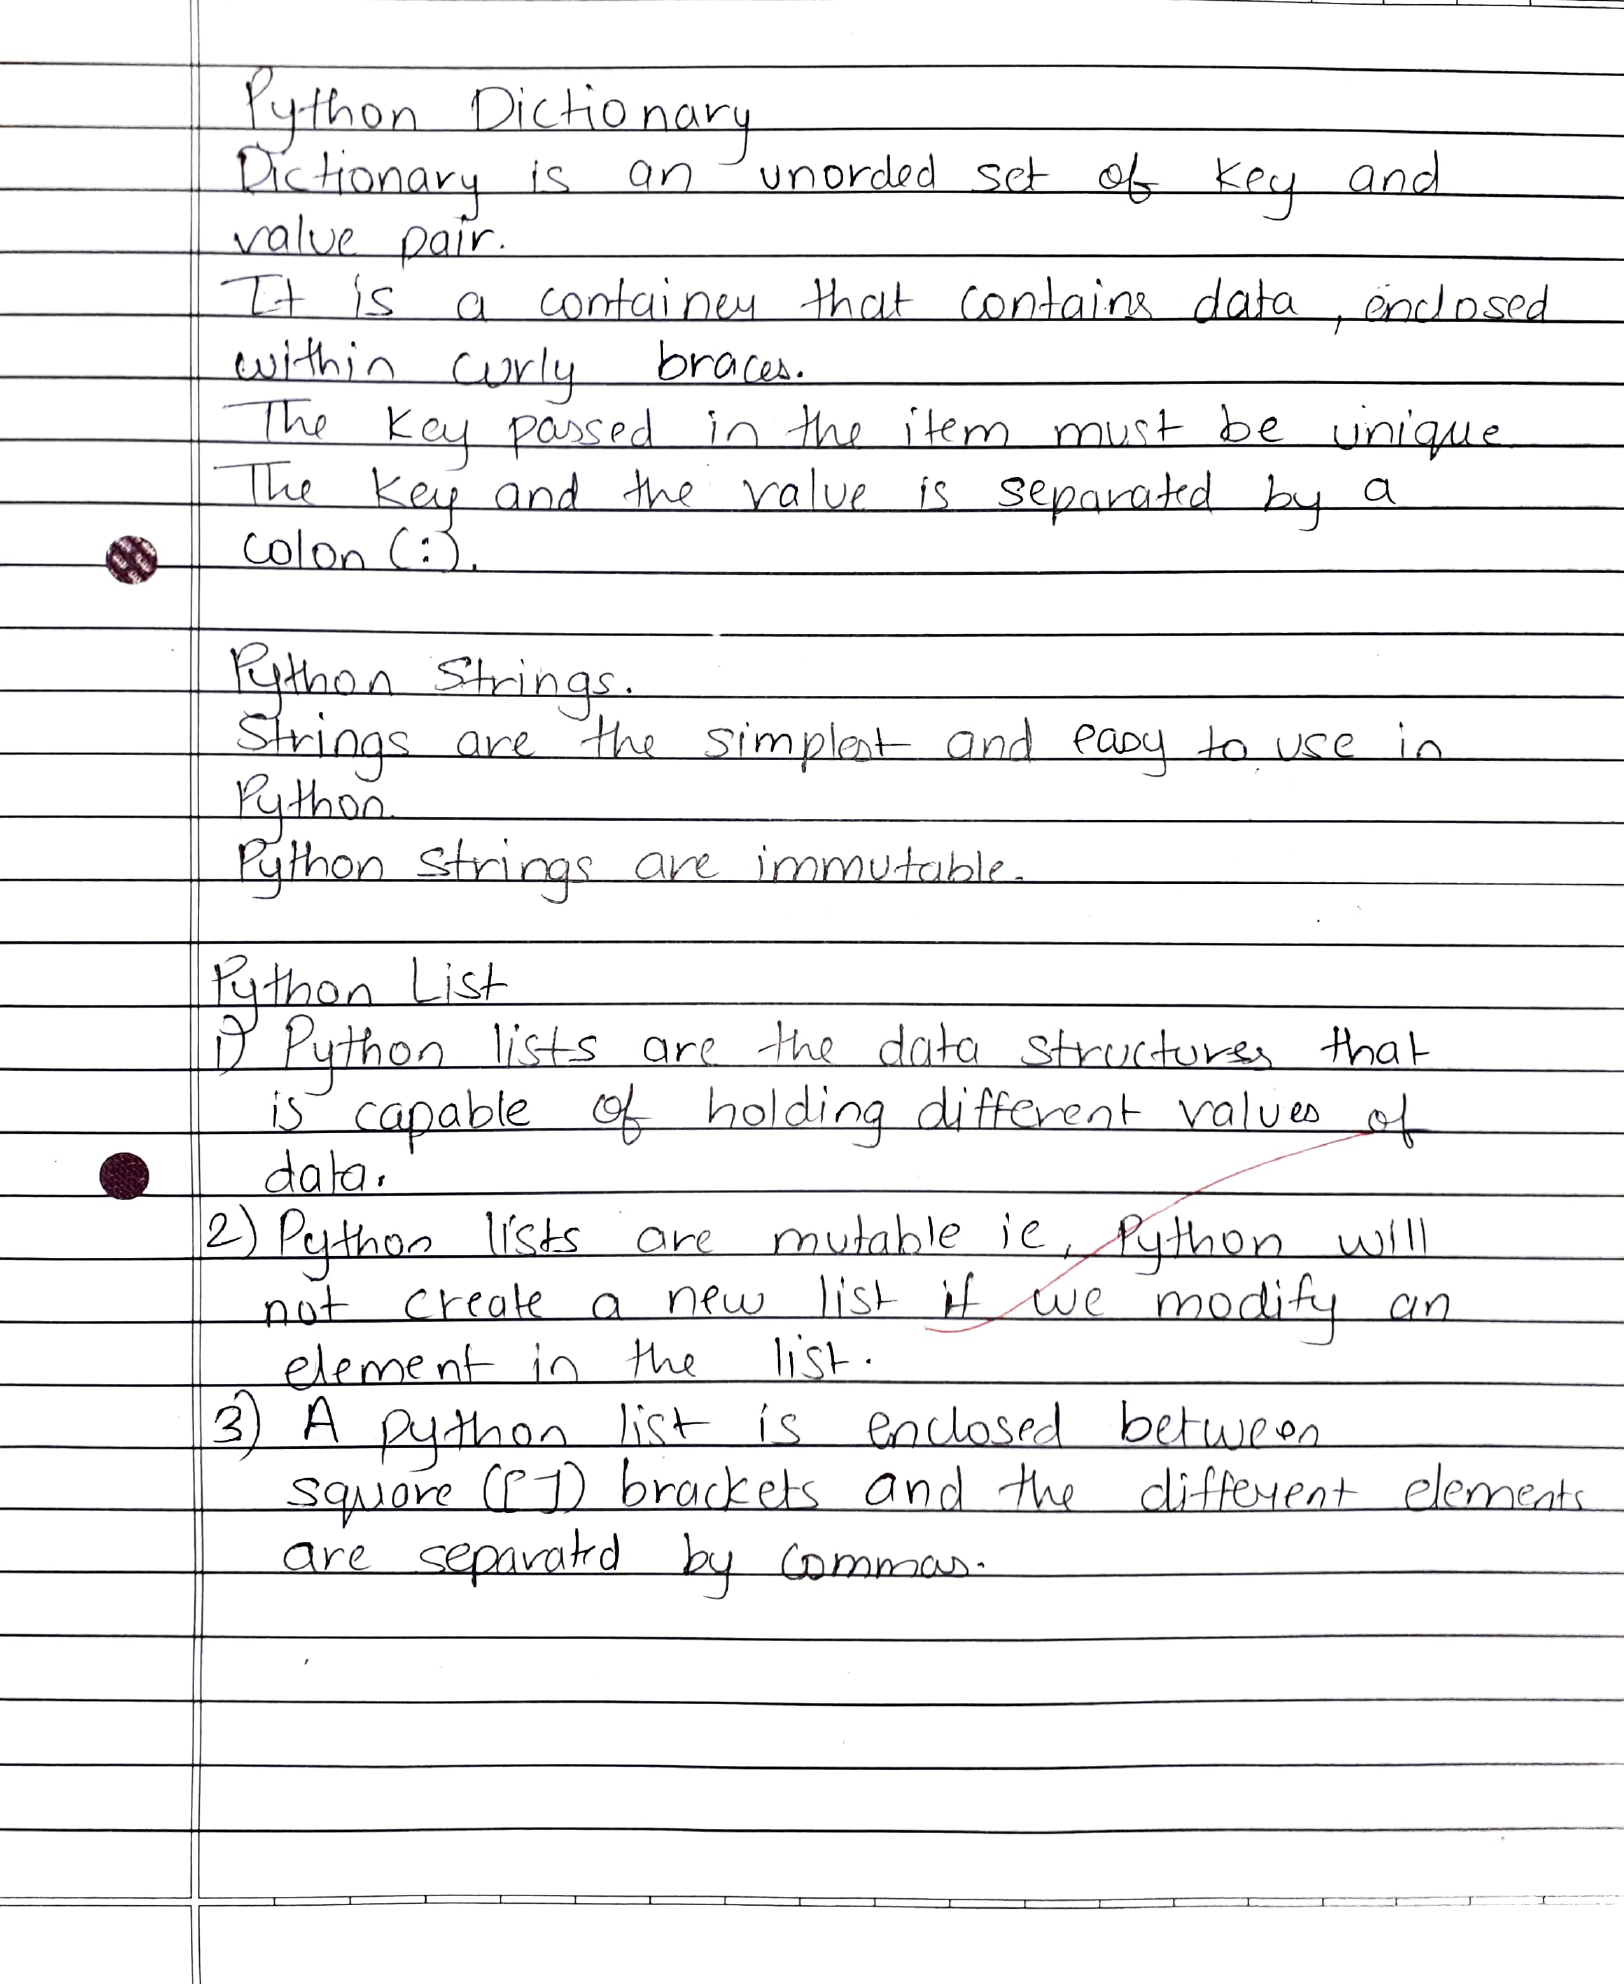 Python Dictionary
Dictionary is an unorded set of key and
value pair.
It is a container that contains data, enclosed
within curly braces.
The key passed in the item must be unique
The key and the value is separated by a
colon (:).
Python Strings.
Strings are the simplest and easy to use in
Python.
Python strings are immutable.
Python List
1) Python lists are the data structures that
is capable of holding different values of
data.
2) Python lists are mutable ie, Python will
not create a new list if we modify an
element in the list.
3) A python list is enclosed between
square ([]) brackets and the different elements
are separated by commas.